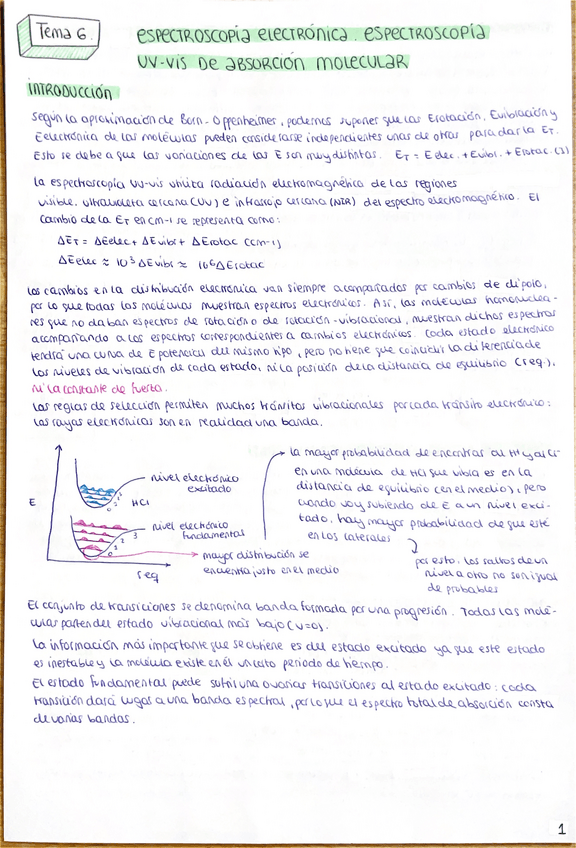 Tema 6.
ESPECTROSCOPÍA ELECTRÓNICA. ESPECTROSCOPÍA
UV-VIS DE ABSORCIÓN MOLECULAR
INTRODUCCIÓN
Según la aproximación de Born-Oppenheimer, podemos suponer que las Erotación, Evibración y
Eelectrónica de las moléculas pueden considerarse independientes unas de otras para dar la ET.
Esto se debe a que las variaciones de las E son muy distintas. ET = Eelec. + Evibr. + Erotac. (J)
La espectroscopía UV-vis utiliza radiación electromagnética de las regiones
visible, ultravioleta cercana (UV) e infrarrojo cercana (NIR) del espectro electromagnético. El
cambio de la ET en cm-1 se representa como:
ΔET = ΔEelec + ΔEvibr + ΔErotac (cm-1)
ΔEelec ≈ 10³ ΔEvibr ≈ 10⁶ ΔErotac
Los cambios en la distribución electrónica van siempre acompañados por cambios de dipolo,
por lo que todas las moléculas muestran espectros electrónicos. Así, las moléculas homonuclea-
res que no daban espectros de rotación o de rotación-vibracional, muestran dichos espectros
acompañando a los espectros correspondientes a cambios electrónicos. Cada estado electrónico
tendrá una curva de E potencial del mismo tipo, pero no tiene que coincidir la diferencia de
los niveles de vibración de cada estado, ni la posición de la distancia de equilibrio (req.),
ni la constante de fuerza.
Las reglas de selección permiten muchos tránsitos vibracionales por cada tránsito electrónico:
las rayas electrónicas son en realidad una banda.
E
nivel electrónico
excitado
HCl
nivel electrónico
fundamental
0 1 2 3
mayor distribución se
encuentra justo en el medio
req
la mayor probabilidad de encontrar al H⁺ y al Cl⁻
en una molécula de HCl que vibra es en la
distancia de equilibrio (en el medio), pero
cuando voy subiendo de E a un nivel exci-
tado, hay mayor probabilidad de que esté
en los laterales
por esto, los saltos de un
nivel a otro no son igual
de probables
El conjunto de transiciones se denomina banda formada por una progresión. Todas las molé-
culas parten del estado vibracional más bajo (v=0).
La información más importante que se obtiene es del estado excitado ya que este estado
es inestable y la molécula existe en él un corto periodo de tiempo.
El estado fundamental puede sufrir una o varias transiciones al estado excitado: cada
transición dará lugar a una banda espectral, por lo que el espectro total de absorción consta
de varias bandas.
1